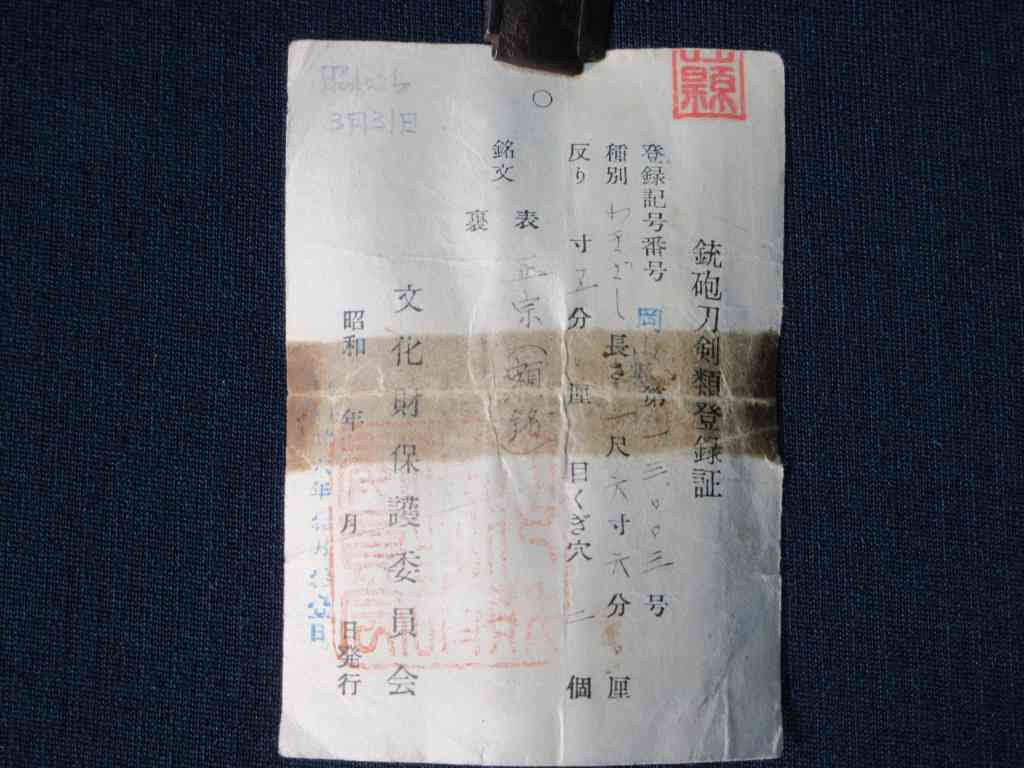 縣
銃砲刀剣類登録証
登録記号番号 岡 第一三〇〇三号
種別 わきざし 長さ 一尺六寸六分 厘
反り 寸五分 厘 目くぎ穴 二個
銘文
表 正宗(額銘)
裏
文化財保護委員会
昭和 年 月 日発行
3月31日